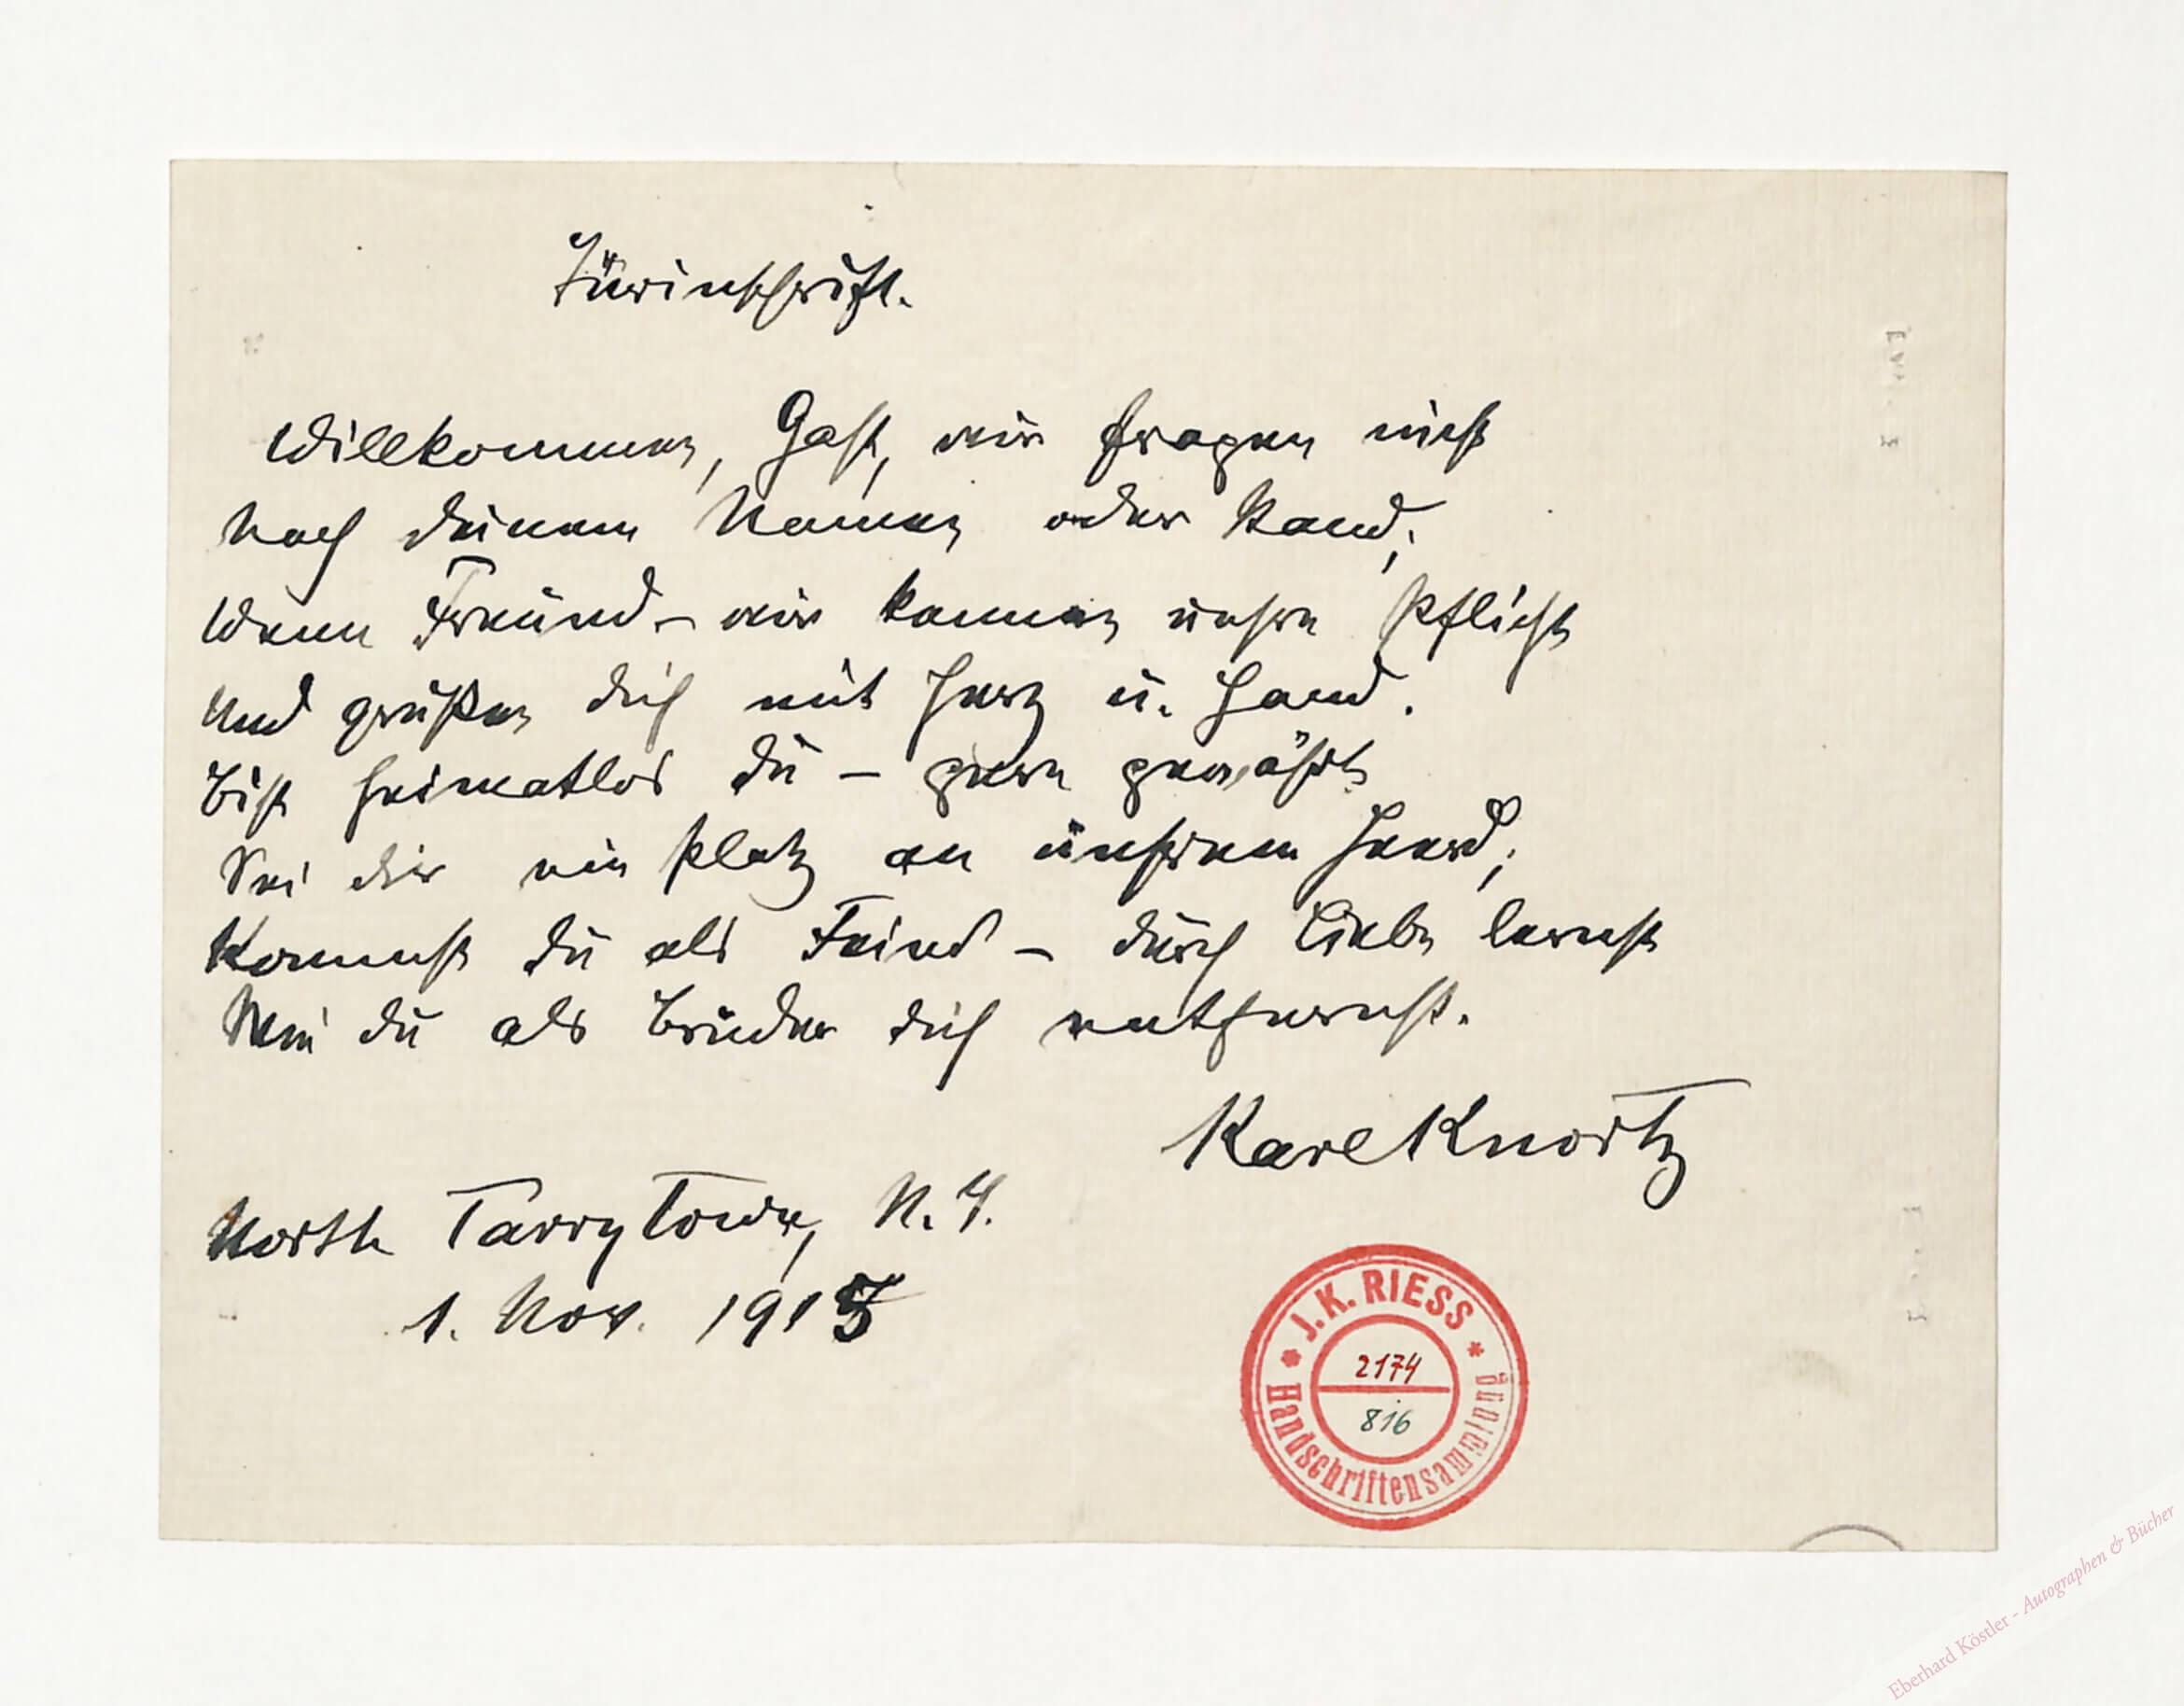 Türinschrift.
Willkommen, Gast, wir fragen nicht
Nach deinem Namen oder
Wenn Freund – wir kennen unsre Pflicht
Und grüßen dich mit Herz u. Hand.
Bist heimatlos du – gern gewährt
Sei dir ein Platz an unsrem Heerd;
Kommst du als Feind – durch Liebe lernst
Wie du als Bruder dich entfernst.
Karl Knortz
North Tarrytown, N.Y.
1. Nov. 1915
* J.K. RIESS *
2174
816
Handschriftensammlung
Eberhard Köstler - Autographen & Bücher